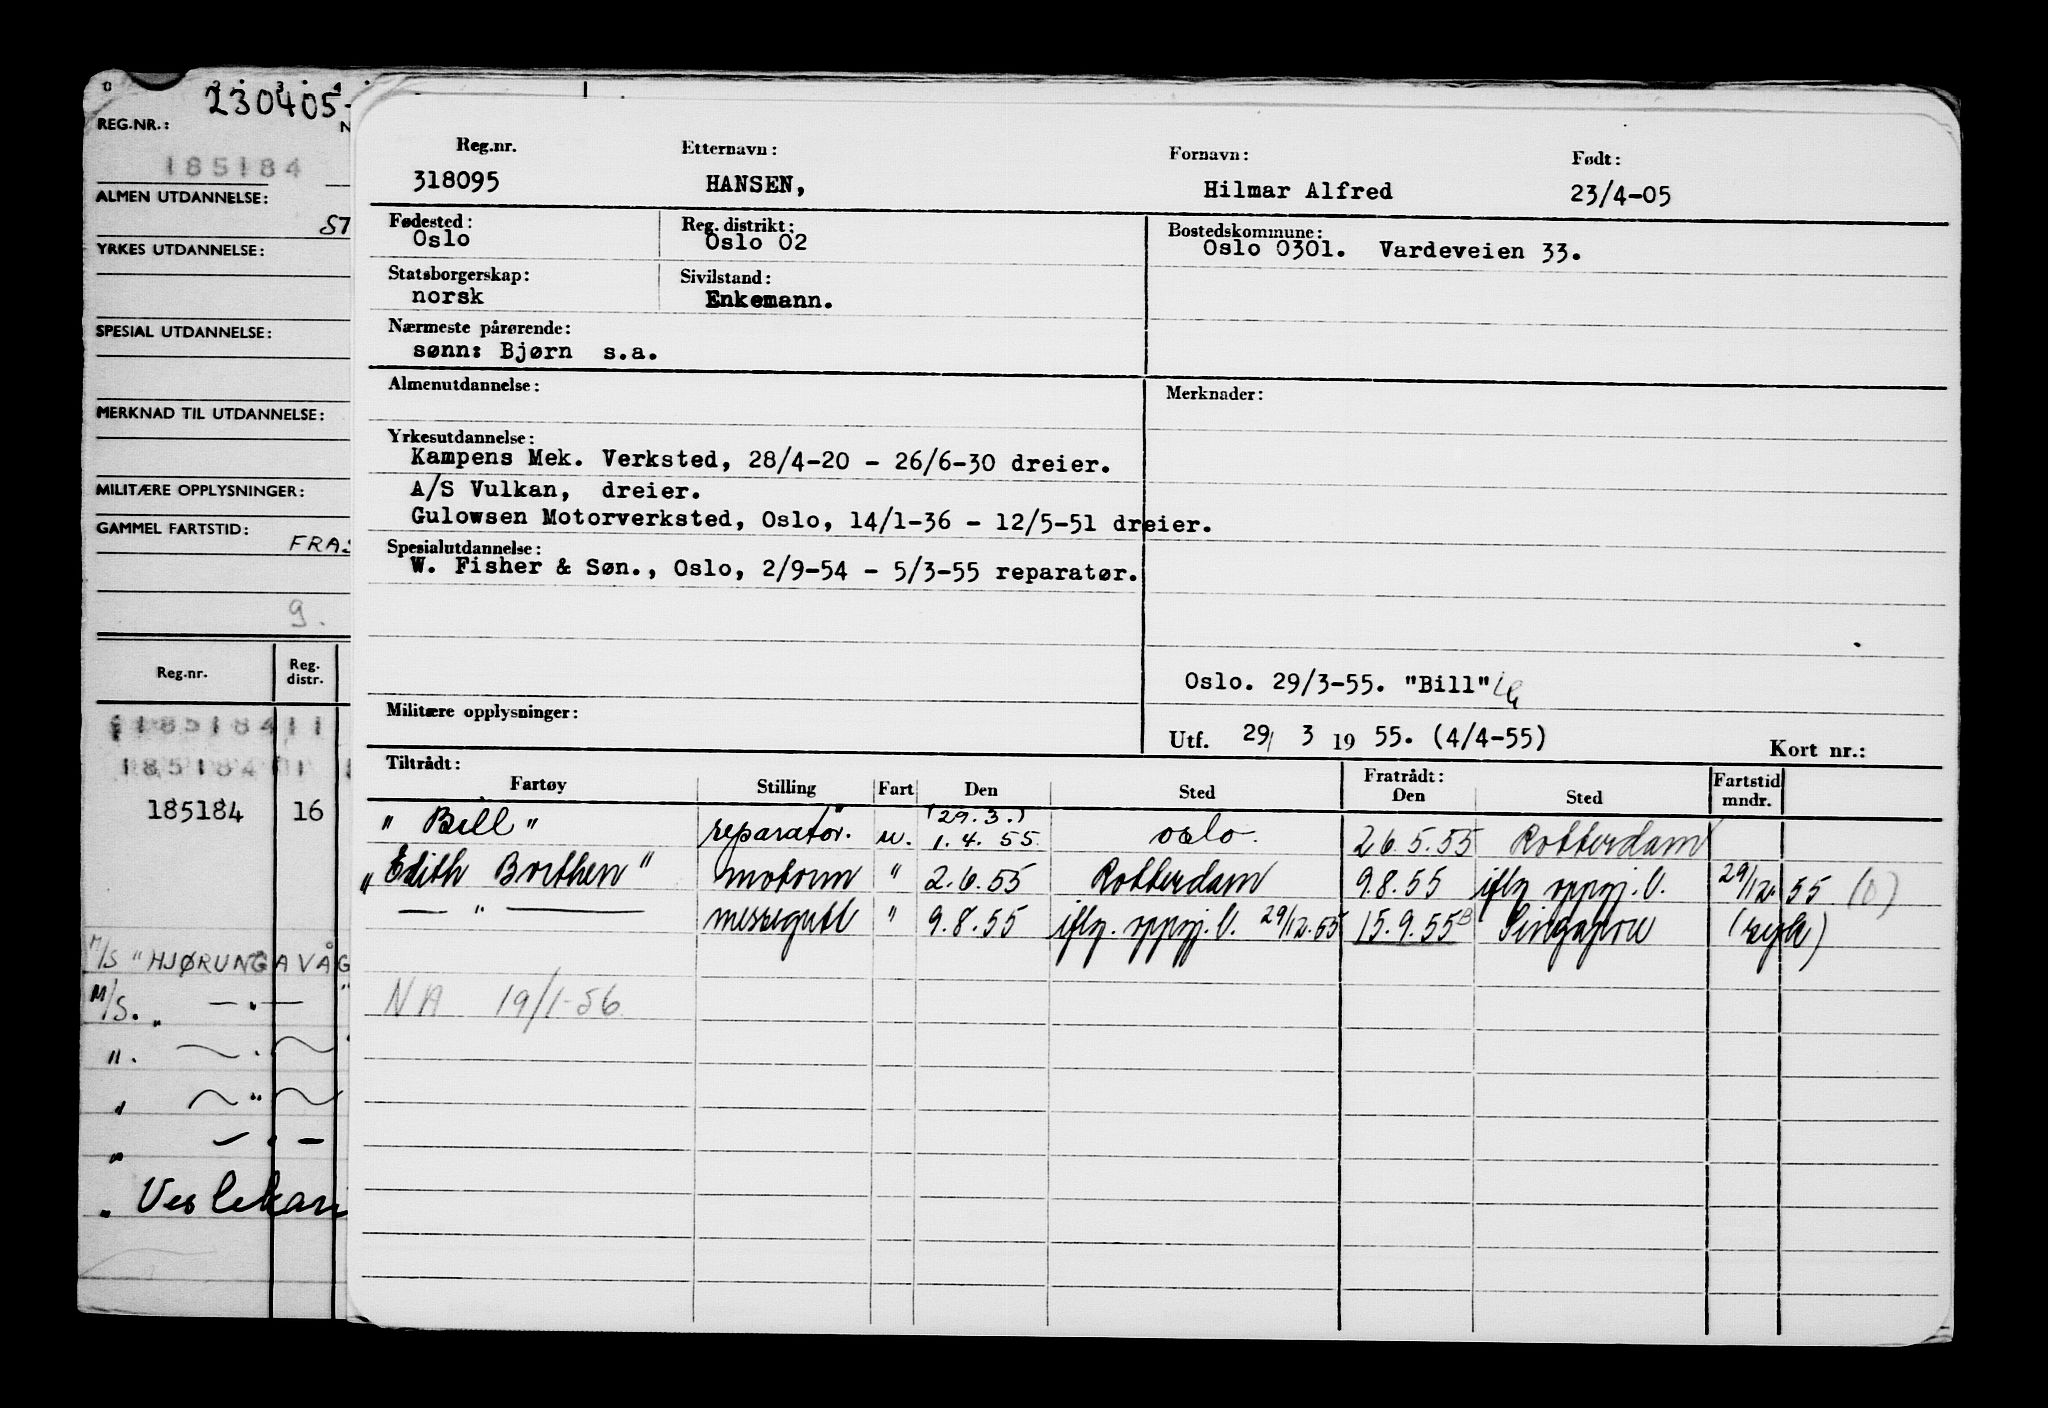 230405-
REG.NR.:
185184
ALMEN UTDANNELSE:
ST
YRKES UTDANNELSE:
SPESIAL UTDANNELSE:
MERKNAD TIL UTDANNELSE:
MILITÆRE OPPLYSNINGER:
GAMMEL FARTSTID:
FRAS
9.
Reg.nr. Reg. distr.
185184 11
185184 01
185184 16
M/S "HJØRUNGAVÅG
M/S. „ — " —
". — " —
„ — " —
„ — " —
„ Veslekari
Reg.nr. Etternavn: Fornavn: Født:
318095 HANSEN, Hilmar Alfred 23/4-05
Fødested: Reg. distrikt: Bostedskommune:
Oslo Oslo 02 Oslo 0301. Vardeveien 33.
Statsborgerskap: Sivilstand:
norsk Enkemann.
Nærmeste pårørende:
sønn: Bjørn s.a.
Almenutdannelse: Merknader:
Yrkesutdannelse:
Kampens Mek. Verksted, 28/4-20 - 26/6-30 dreier.
A/S Vulkan, dreier.
Gulowsen Motorverksted, Oslo, 14/1-36 - 12/5-51 dreier.
Spesialutdannelse:
W. Fisher & Søn., Oslo, 2/9-54 - 5/3-55 reparatør.
Oslo. 29/3-55. "Bill"
Militære opplysninger:
Utf. 29/ 3 19 55. (4/4-55) Kort nr.:
Tiltrådt: Fratrådt: Fartstid mndr.
Fartøy Stilling Fart Den Sted Den Sted
(29.3.)
" Bill " reparatör. u. 1.4.55 oslo. 26.5.55 Rotterdam
„ Edith Borthen " motorm " 2.6.55 Rotterdam 9.8.55 iflg oppgj. U. 29/12.55 (0)
— " — messegutt " 9.8.55 iflg. oppgj. U. 29/12.55 15.9.55 B Singapore (syk)
NA 19/1-56